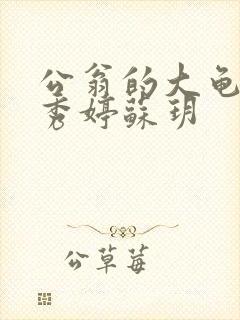 公翁的大龟
秀婷蘇玥
公草莓